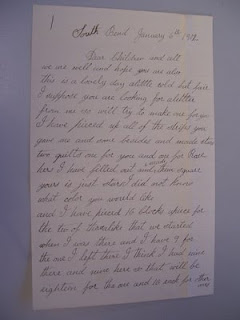 1
South Bend January 5th 1912.
Dear Children and all
we are well and hope you are also
this is a lovely day alittle cold but fair
I suppose you are looking for aletter
from us so will try to make one for you
I have pieced up all of the strips you
gave me and some besides and made
two quilts one for you and one for Rose
hers I have filled out and square
yours is just I did not know
what color you would like
and I have pieced 16 blocks for
the that we started
when I was there and I have 7 for
the one I left there I think I had nine
there and nine here so that will be
eighteen for the one and 16 each for